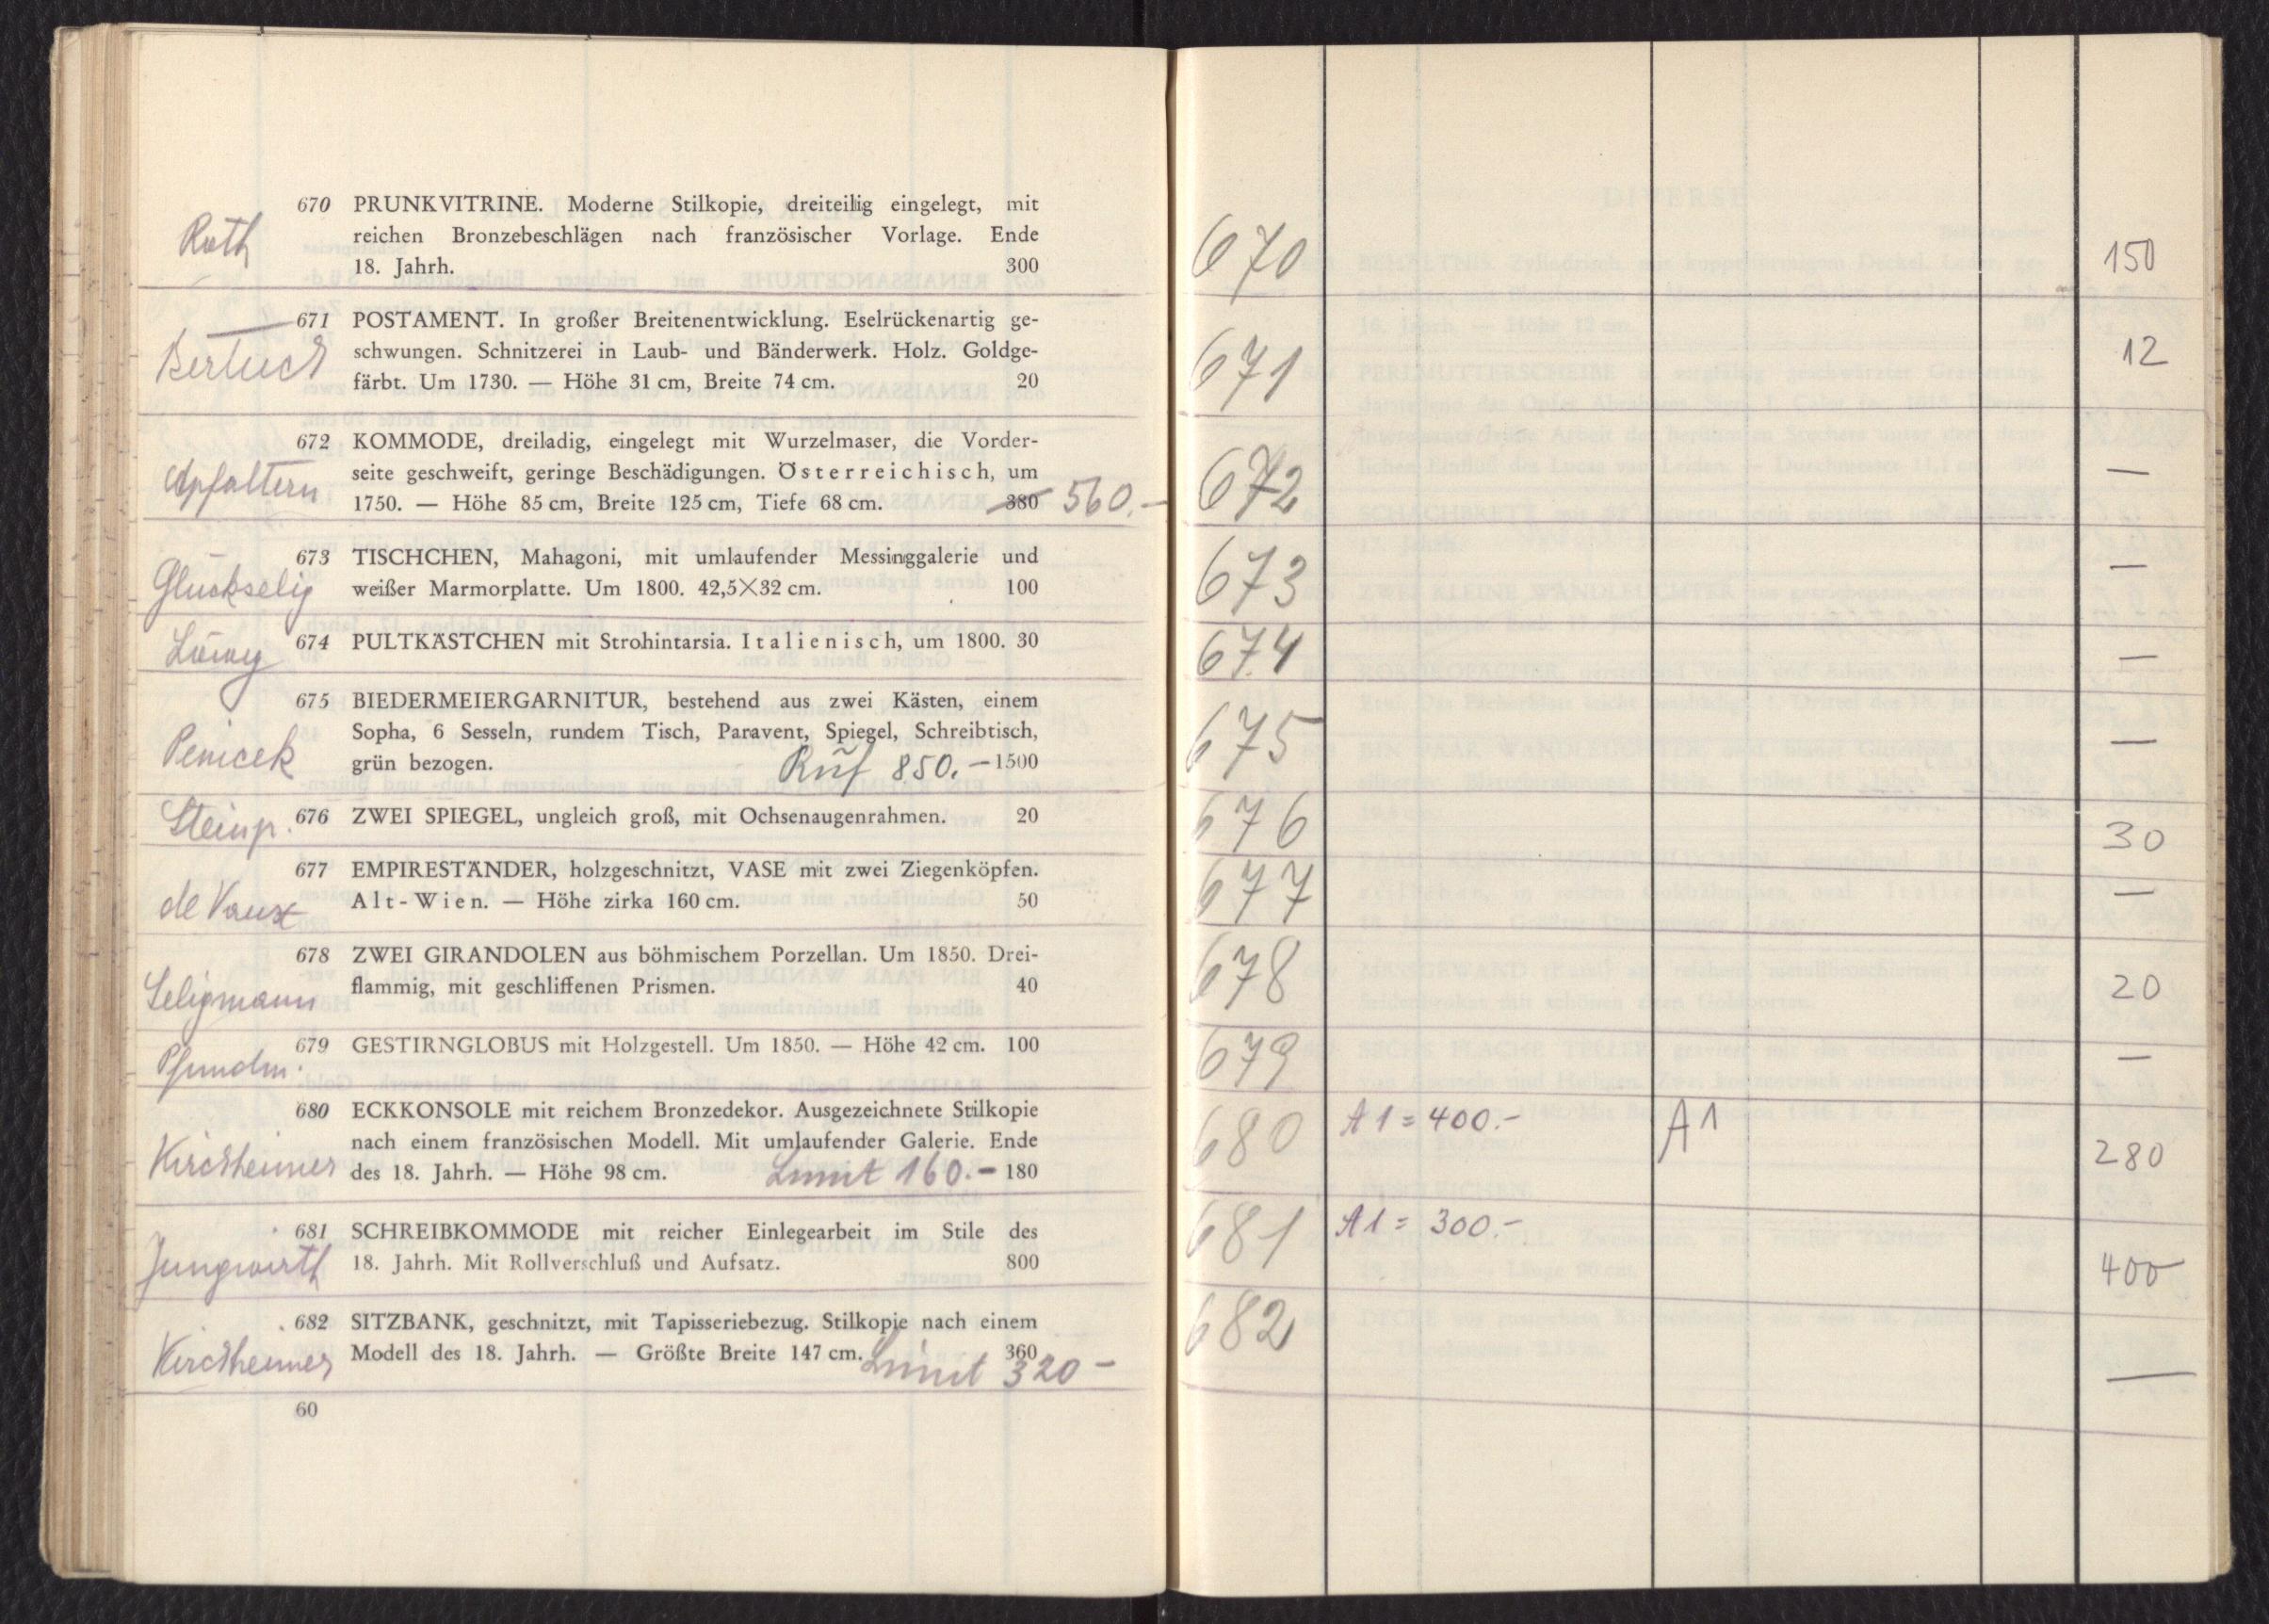 670 PRUNKVITRINE. Moderne Stilkopie, dreiteilig eingelegt, mit
Roth reichen Bronzebeschlägen nach französischer Vorlage. Ende
18. Jahrh. 300
671 POSTAMENT. In großer Breitenentwicklung. Eselrückenartig ge-
schwungen. Schnitzerei in Laub- und Bänderwerk. Holz. Goldge-
färbt. Um 1730. — Höhe 31 cm, Breite 74 cm. 20
672 KOMMODE, dreiladig, eingelegt mit Wurzelmaser, die Vorder-
Apfaltern seite geschweift, geringe Beschädigungen. Österreichisch, um
1750. — Höhe 85 cm, Breite 125 cm, Tiefe 68 cm. 380 560.-
673 TISCHCHEN, Mahagoni, mit umlaufender Messinggalerie und
Glückselig weißer Marmorplatte. Um 1800. 42,5×32 cm. 100
Löwy 674 PULTKÄSTCHEN mit Strohintarsia. Italienisch, um 1800. 30
675 BIEDERMEIERGARNITUR, bestehend aus zwei Kästen, einem
Sopha, 6 Sesseln, rundem Tisch, Paravent, Spiegel, Schreibtisch,
Penicek grün bezogen. Ruf 850.- 1500
Steinp. 676 ZWEI SPIEGEL, ungleich groß, mit Ochsenaugenrahmen. 20
677 EMPIRESTÄNDER, holzgeschnitzt, VASE mit zwei Ziegenköpfen.
de Vaux Alt-Wien. — Höhe zirka 160 cm. 50
678 ZWEI GIRANDOLEN aus böhmischem Porzellan. Um 1850. Drei-
Seligmann flammig, mit geschliffenen Prismen. 40
679 GESTIRNGLOBUS mit Holzgestell. Um 1850. — Höhe 42 cm. 100
Pfundm.
680 ECKKONSOLE mit reichem Bronzedekor. Ausgezeichnete Stilkopie
nach einem französischen Modell. Mit umlaufender Galerie. Ende
Kirchheimer des 18. Jahrh. — Höhe 98 cm. Limit 160.- 180
681 SCHREIBKOMMODE mit reicher Einlegearbeit im Stile des
Jungwirth 18. Jahrh. Mit Rollverschluß und Aufsatz. 800
682 SITZBANK, geschnitzt, mit Tapisseriebezug. Stilkopie nach einem
Kirchheimer Modell des 18. Jahrh. — Größte Breite 147 cm. 360
Limit 320-
60
670 150
671 12
672 —
673 —
674 —
675 —
676 30
677 —
678 20
679 —
680 A1=400.- A1 280
681 A1= 300.- 400
682 —